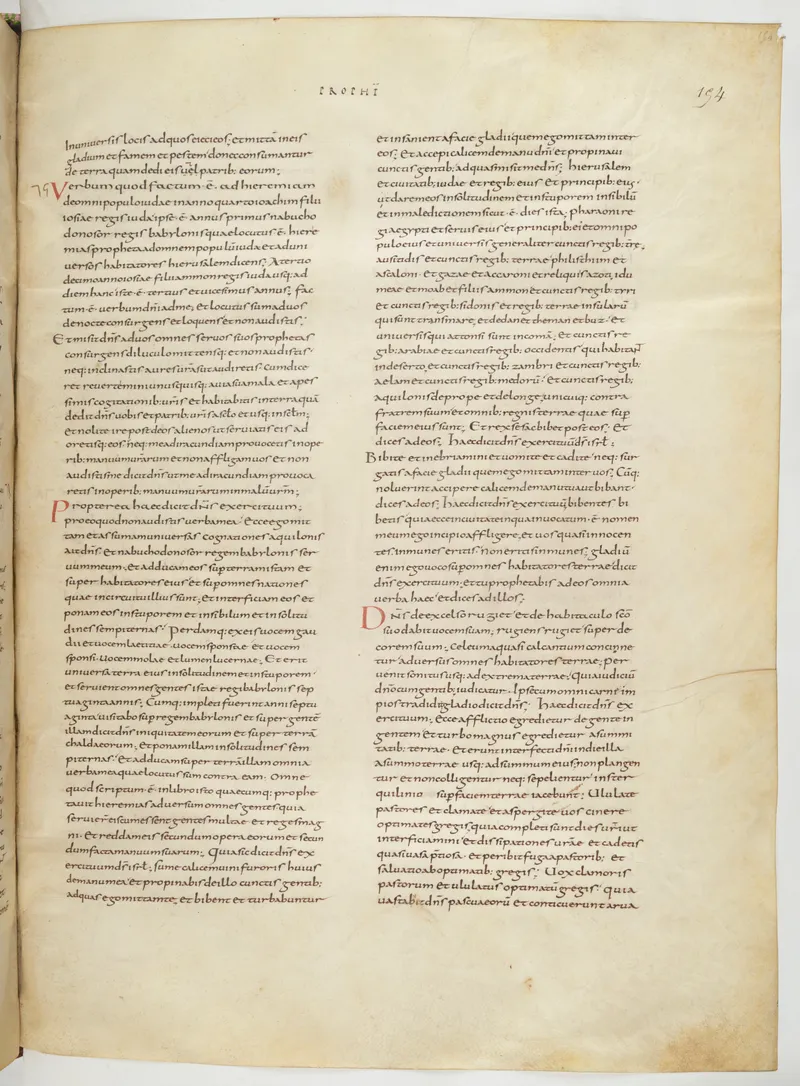 PROPHĒT
194
In uniuersis locis ad quos eieci eos; et mittā in eis
gladium et famem et pestem donec consumantur
de terra quam dedi eis uel patrib: eorum;
Verbum quod factum ē ad hieremiam
de omni populo iudae in anno quarto ioachim filii
iosiae regis iuda ipse ē annus primus nabucho
donosor regis babylonis quae locutus ē hiere
mias propheta ad omnem populū iuda et ad uni
uersos habitatores hierusalem dicens; A tertio
decimo anno iosiae filii ammon regis iuda usq: ad
diem hanc iste ē tertius et uicesimus annus; fac
tum ē uerbum dñi ad me; et locutus sum ad uos
de nocte consurgens et loquens et non audistis;
Et misit dñs ad uos omnes seruos suos prophetas
consurgens diluculo mittensq: et non audistis
neq: inclinastis aures uras ut audiretis; Cum dice
ret reuertemini unusquisq: a uia sua mala et a pes
simis cogitationib: uris et habitabitis in terra quā
dedit dñs uobis et patrib: uris a sclo et usq: in sclm;
et nolite ire post deos alienos ut seruiatis eis ad
oretisq: eos; neq: me ad iracundiam prouocetis in ope
rib: manuum urarum et non affligam uos et non
audistis me dicit dñs ut me ad iracundiam prouoca
retis in operib: manuum urarum in malū urm;
Propterea haec dicit dñs exercituum;
pro eo quod non audistis uerba mea; Ecce ego mit
tam et assumam uniuersas cognationes aquilonis
ait dñs; Et nabuchodonosor regem babylonis ser
uum meum; et adducam eos sup terram istam et
super habitatores eius et sup omnes nationes
quae in circuitu illius sunt; et interficiam eos et
ponam eos in stuporem et in sibilum et in solitu
dines sempiternas; Perdamq: ex eis uocem gau
dii et uocem laetitiae uocem sponsi et uocem
sponsae; uocem molae et lumen lucernae; Et erit
uniuersa terra eius in solitudinem et in stuporem
et seruient omnes gentes istae regi babylonis sep
tuaginta annis; Cumq: impleti fuerint anni septu
aginta uisitabo sup regem babylonis et super gentē
illam dicit dñs iniquitatem eorum et super terrā
chaldaeorum; et ponam illam in solitudines sem
piternas; Et adducam super terrā illam omnia
uerba mea quae locutus sum contra eam. Omne
quod scriptum ē in libro isto quaecumq: prophe
tauit hieremias aduersum omnes gentes quia
seruierunt eis cum essent gentes multae et reges mag
ni. Et reddam eis secundum opera eorum et secun
dum facta manuum suarum; Quia sic dicit dñs ex
ercituum ds isrl; sume calicem uini furoris huius
de manu mea et propinabis de illo cunctis gentib:
ad quas ego mittam te; et bibent et turbabuntur
et insanient a facie gladii quem ego mittam inter
eos; Et accepi calicem de manu dñi et propinaui
cunctis gentib: ad quas misit me dñs; hierusalem
et ciuitatib: iudae et regib: eius et principib: eius
ut darem eos in solitudinem et in stuporem in sibilū
et in maledictionem sicut ē dies ista; pharaoni re
gi aegypti et seruis eius et principib: ei et omni po
pulo eius et uniuersis generaliter cunctis regib: tre
ausitidis et cunctis regib: terrae philisthim et
ascaloni et gazae et accaroni et reliquis azoti idu
meae et moab et filiis ammon et cunctis regib: tyri
et cunctis regib: sidonis et regib: terrae insularū
qui sunt trans mare; et dedan et theman et buz et
uniuersis qui attonsi sunt in comā; et cunctis re
gib: arabiae et cunctis regib: occidentis qui habitant
in deserto; et cunctis regib: zambri et cunctis regib:
aelam et cunctis regib: medorū; Et cunctis regib:
aquilonis de prope et de longe unicuiq: contra
fratrem suum et omnib: regnis terrae quae sup
faciem eius sunt; Et rex sesach bibet post eos; Et
dices ad eos; Haec dicit dñs exercituū ds isrl;
Bibite et inebriamini et uomite et cadite neq: sur
gatis a facie gladii quem ego mittam inter uos; Cūq:
noluerint accipere calicem de manu tua ut bibant
dices ad eos; Haec dicit dñs exercituū bibentes bi
betis quia ecce in ciuitate in qua inuocatum ē nomen
meum ego incipio affligere; et uos quasi innocen
tes inmunes eritis; non eritis inmunes; gladiū
enim ego uoco sup omnes habitatores terrae dicit
dñs exercituum; et tu prophetabis ad eos omnia
uerba haec et dices ad illos;
Dñs de excelso rugiet et de habitaculo sco
suo dabit uocem suam; rugiens rugiet super de
corem suum; celeuma quasi calcantium concine
tur aduersus omnes habitatores terrae; per
uenit sonitus usq: ad extrema terrae; Quia iudiciū
dño cum gentib; iudicatur ipse cum omni carne im
pios tradidi gladio dicit dñs; Haec dicit dñs ex
ercituum; ecce afflictio egredietur de gente in
gentem et turbo magnus egredietur a summi
tatib: terrae Et erunt interfecti dñi in die illa
a summo terrae usq: ad summum eius; non plangen
tur et non colligentur neq: sepelientur in ster
quilinio sup faciem terrae iacebunt; Ululate
pastores et clamate et aspergite uos cinere
optimates gregis; quia completi sunt dies uri ut
interficiamini et dissipationes urae et cadetis
quasi uasa ptiosa. et peribit fuga a pastorib: et
saluatio ab optimatib: gregis; Uox clamoris
pastorum et ululatus optimatū gregis quia
uastabit dñs pascua eorū et conticuerunt arua